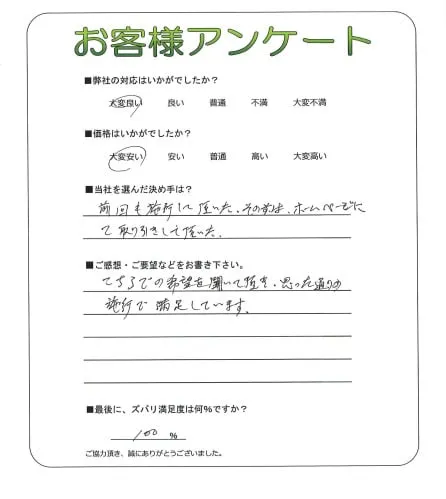 お客様アンケート
■弊社の対応はいかがでしたか？
大変良い 良い 普通 不満 大変不満
■価格はいかがでしたか？
大変安い 安い 普通 高い 大変高い
■当社を選んだ決め手は？
前回も施行して頂いた、その前は、ホームページに
て取り引きして頂いた。
■ご感想・ご要望などをお書き下さい。
こちらでの希望を聞いて頂き、思った通りの
施行で満足しています。
■最後に、ズバリ満足度は何%ですか？
100 %
ご協力頂き、誠にありがとうございました。